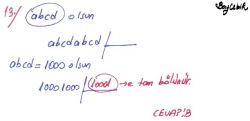 13.) abcd olsun
abcdabcd
abcd = 1000 olsun
10001000 1000 → e tam bölünür.
CEVAP: B